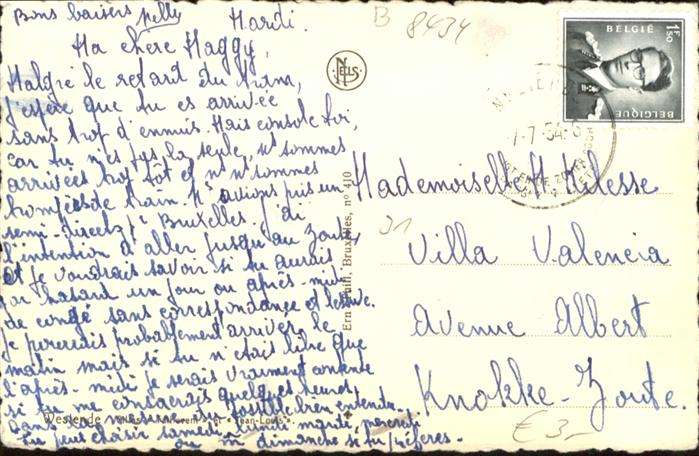 Bons baisers
Mardi.
B 8434
Ma chère Maggy,
Malgré le retard du tram,
j'espère que tu es arrivée
sans trop d'ennuis. Mais console toi,
car tu n'es pas la seule, ns sommes
arrivées trop tôt et ns ns sommes
trompées de tram. Ns avions pris un
semi-direct pr Bruxelles. J'ai
l'intention d'aller jusqu'au Zoute
et je voudrais savoir si tu aurais
par hasard un jour ou après-midi
de congé sans correspondance et lessive.
Je pourrais probablement arriver le
matin mais si tu n'étais libre que
l'après-midi je serais vraiment contente
si tu me consacrais quelques heures,
dans la mesure du possible bien entendu.
Tu peux choisir samedi, lundi mardi, mercredi
ou m dimanche si tu préfères.
Westende
"Jean-Louis".
NELS
Ern. Thill, Bruxelles, n° 410
BELGIË
1F50
BELGIQUE
-7-54
Mademoiselle M. Kilesse
31
Villa Valencia
Avenue Albert
Knokke-Zoute.
€ 3,-